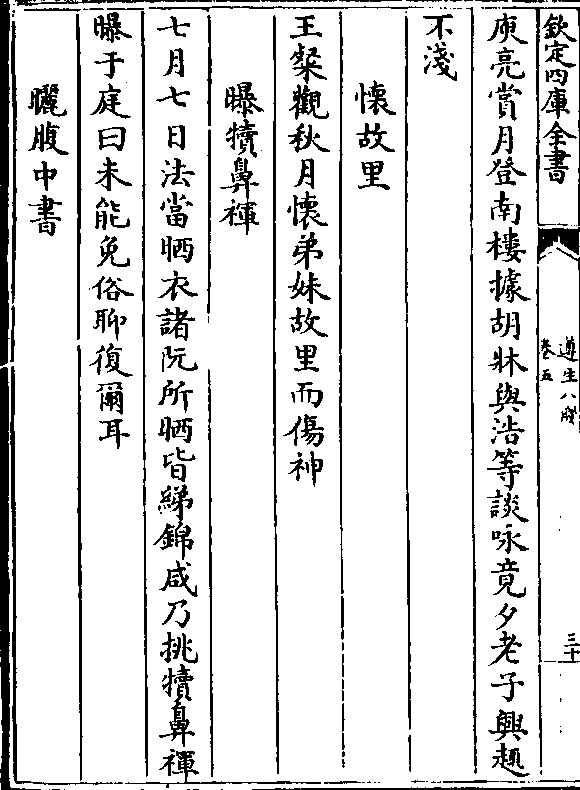 欽定四庫全書
遵生八牋
卷五
三十
庾亮賞月登南樓據胡牀與浩等談咏竟夕老子興趣
不淺
懷故里
王粲觀秋月懷弟妹故里而傷神
曝犢鼻褌
七月七日法當晒衣諸阮所晒皆綈錦咸乃挑犢鼻褌
曝于庭曰未能免俗聊復爾耳
曬腹中書